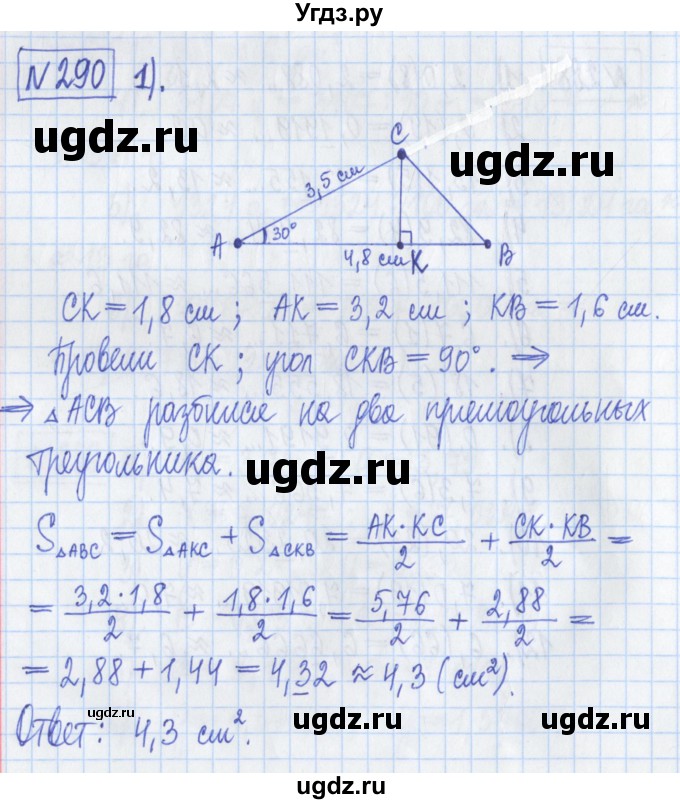 Угдз.ру
N 290 1).
ugdz.ru
C
ugdz.ru
3,5 см
A 30°
4,8 см K B
CK = 1,8 см ; AK = 3,2 см ; KB = 1,6 см.
Провели CK ; угол CKB = 90°. ⇒
⇒ △ACB разбился на два прямоугольных
треугольника.
ugdz.ru
S△ABC = S△AKC + S△CKB = AK·KC/2 + CK·KB/2 =
= 3,2·1,8/2 + 1,8·1,6/2 = 5,76/2 + 2,88/2 =
= 2,88 + 1,44 = 4,32 ≈ 4,3 (см²).
ugdz.ru
ugdz.ru
ugdz.ru
Ответ: 4,3 см².
ugdz.ru